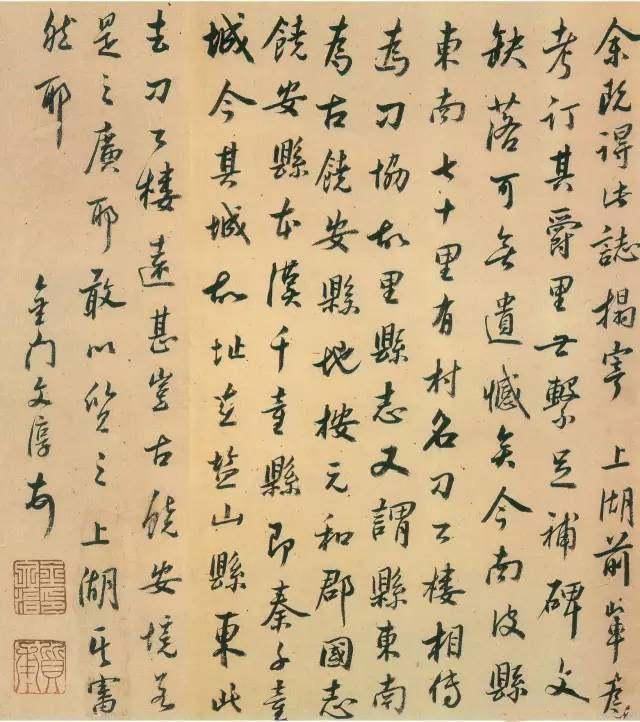 余既得此誌搨寄 上湖前輩爲
考訂其爵里世繫足補碑文
缺落可無遺憾矣今南皮縣
東南七十里有村名刁公樓相傳
為刁協故里縣志又謂縣東南
為古饒安縣地按元和郡國志
饒安縣本漢千童縣即秦千童
城今其城故址在鹽山縣東此
去刁公樓遠甚豈古饒安境若
是之廣耶敢以質之 上湖其審
然耶
金門文淳
質甫